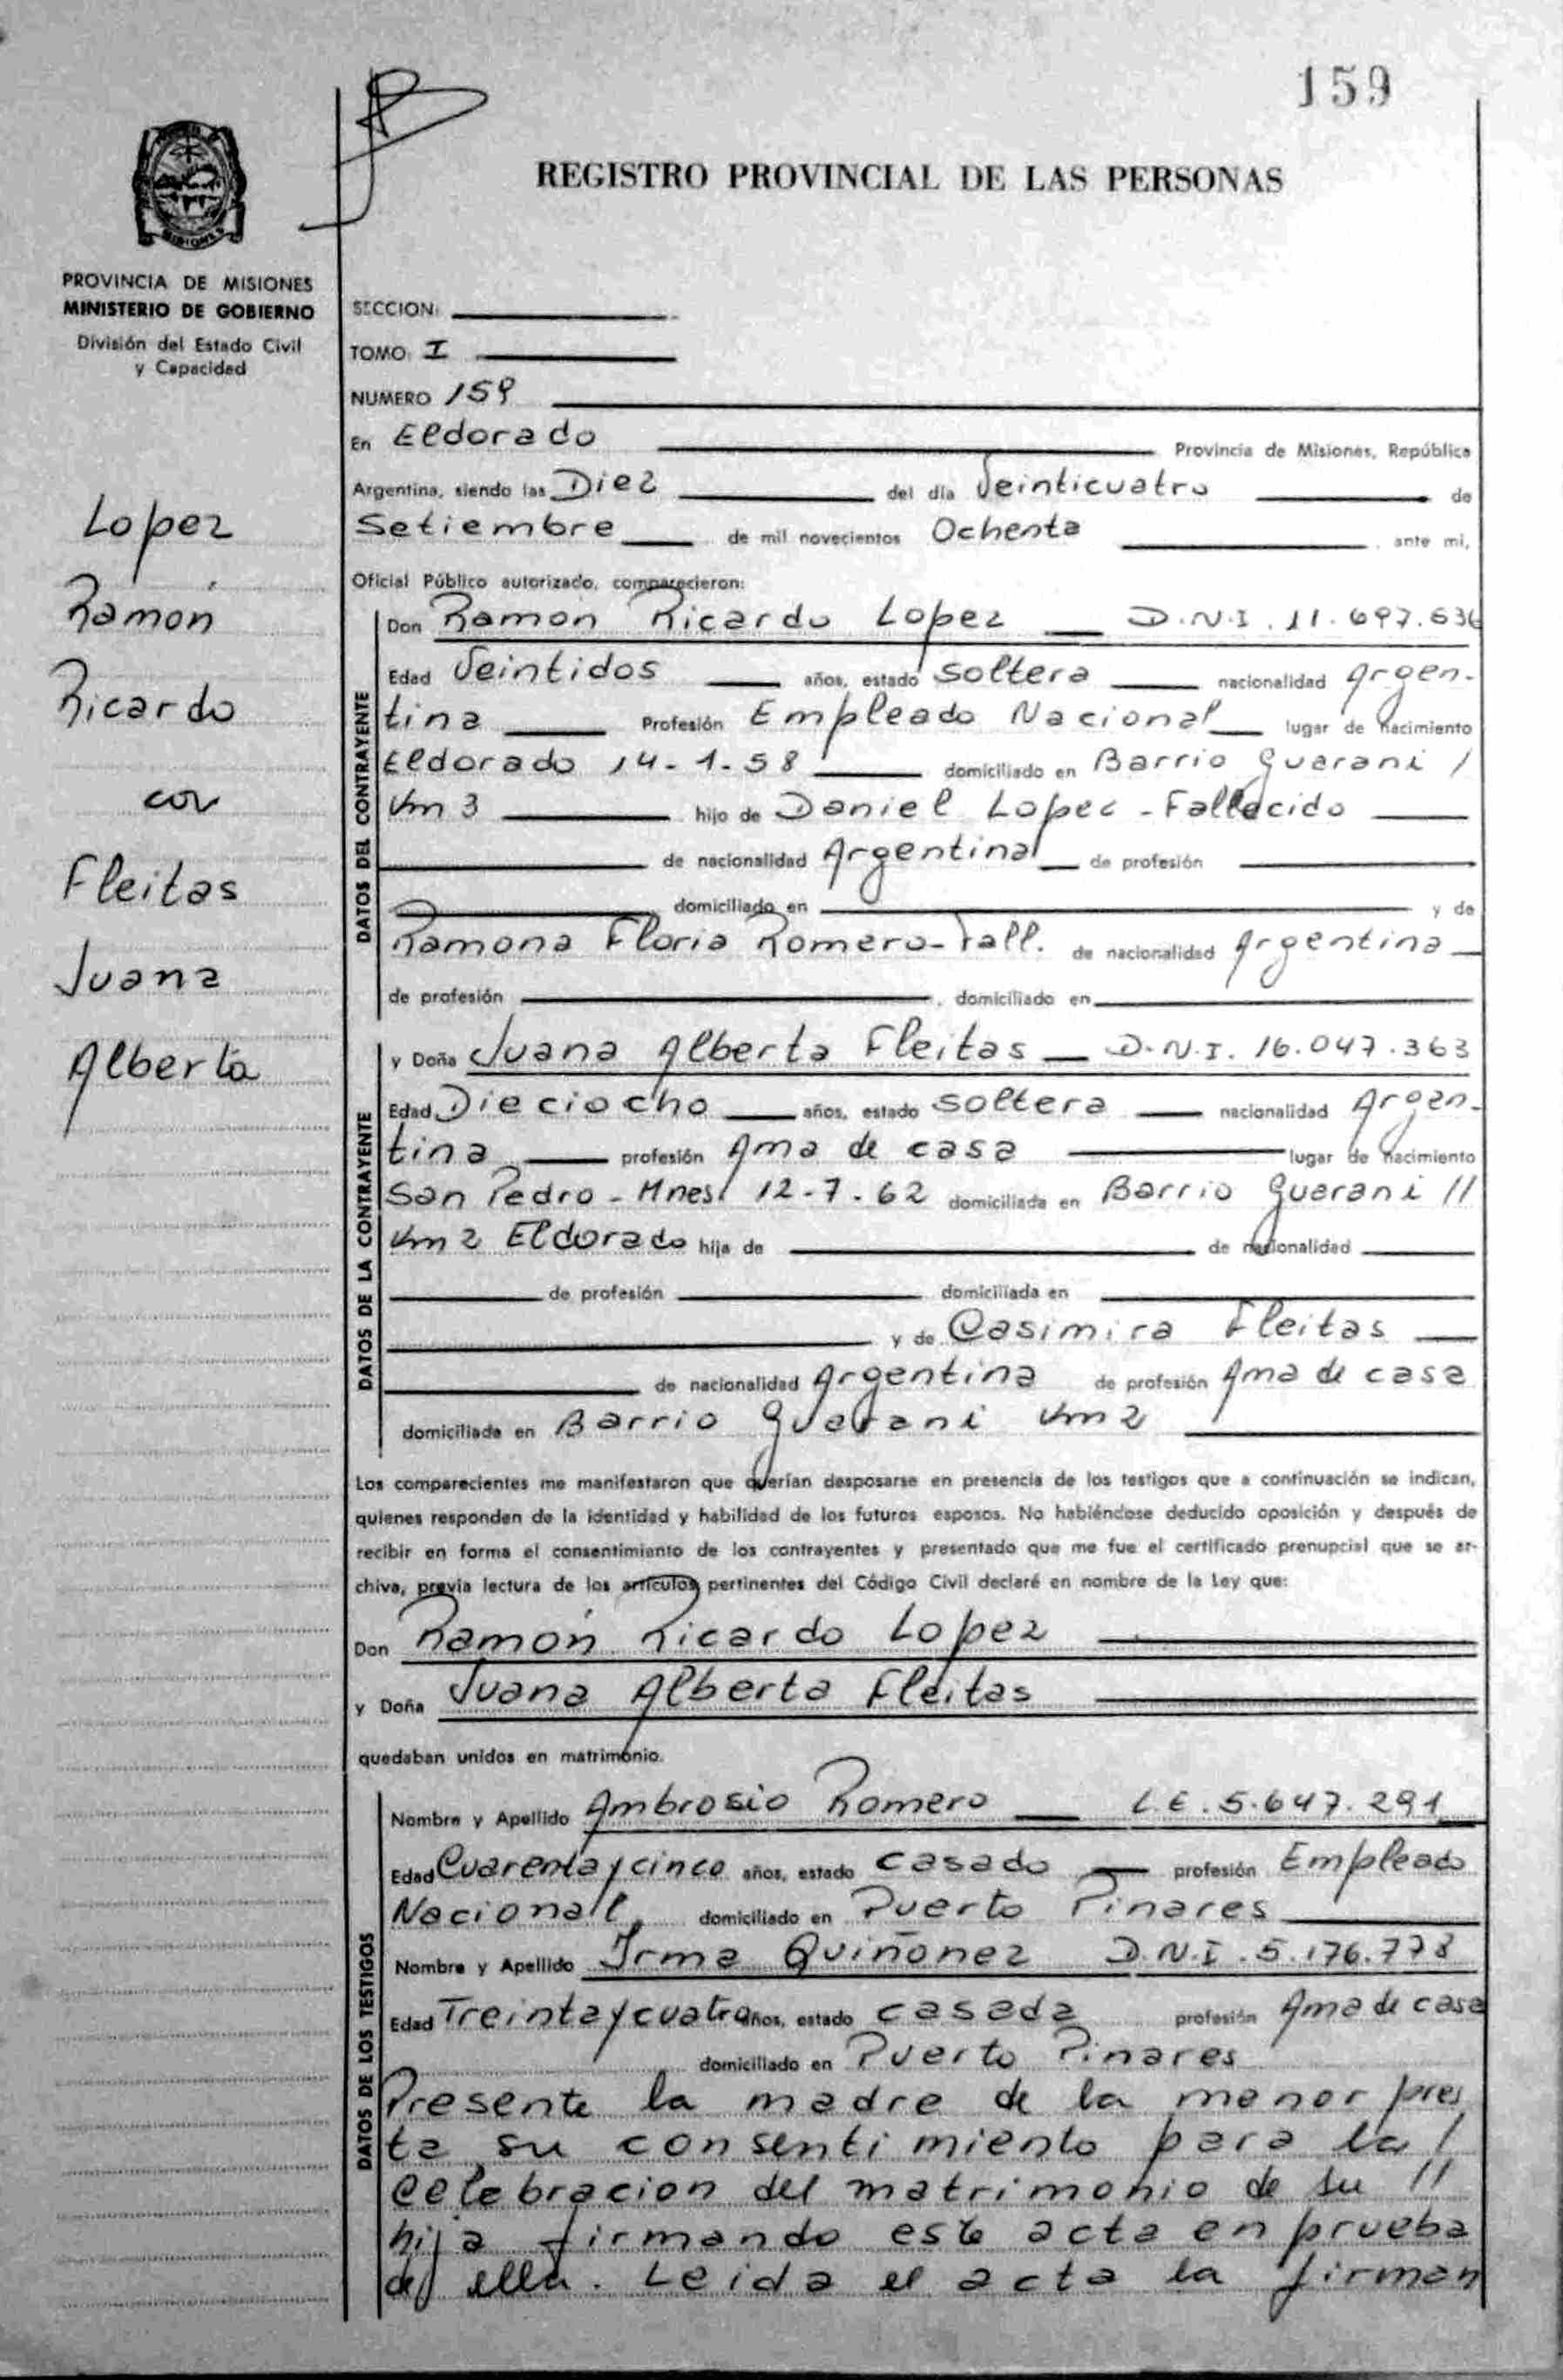 159
REGISTRO PROVINCIAL DE LAS PERSONAS
MISIONES
PROVINCIA DE MISIONES
MINISTERIO DE GOBIERNO
División del Estado Civil
y Capacidad
Lopez
Ramón
Ricardo
con
Fleitas
Juana
Alberta
SECCION:
TOMO: I
NUMERO 159
En Eldorado Provincia de Misiones, República
Argentina, siendo las Diez del día Veinticuatro de
Setiembre de mil novecientos Ochenta ante mi,
Oficial Público autorizado, comparecieron:
DATOS DEL CONTRAYENTE
Don Ramon Ricardo Lopez D.N.I. 11.697.636
Edad Veintidos años, estado soltera nacionalidad Argen-
tina Profesión Empleado Nacional lugar de nacimiento
Eldorado 14-1-58 domiciliado en Barrio Guarani /
Km 3 hijo de Daniel Lopez - Fallecido
de nacionalidad Argentina de profesión
domiciliado en y de
Ramona Floria Romero - Fall. de nacionalidad Argentina
de profesión , domiciliado en
DATOS DE LA CONTRAYENTE
y Doña Juana Alberta Fleitas D.N.I. 16.047.363
Edad Dieciocho años, estado soltera nacionalidad Argen-
tina profesión Ama de casa lugar de nacimiento
San Pedro - Mnes/ 12-7-62 domiciliada en Barrio Guarani //
Km 2 Eldorado hija de de nacionalidad
de profesión domiciliada en
y de Casimira Fleitas
de nacionalidad Argentina de profesión Ama de casa
domiciliada en Barrio Guarani Km 2
Los comparecientes me manifestaron que querían desposarse en presencia de los testigos que a continuación se indican,
quienes responden de la identidad y habilidad de los futuros esposos. No habiéndose deducido oposición y después de
recibir en forma el consentimiento de los contrayentes y presentado que me fue el certificado prenupcial que se ar-
chiva, previa lectura de los artículos pertinentes del Código Civil declaré en nombre de la Ley que:
Don Ramón Ricardo Lopez
y Doña Juana Alberta Fleitas
quedaban unidos en matrimonio.
DATOS DE LOS TESTIGOS
Nombre y Apellido Ambrosio Romero L.E. 5.647.291
Edad Cuarenta y cinco años, estado casado profesión Empleado
Nacional domiciliado en Puerto Pinares
Nombre y Apellido Irma Quiñonez D.N.I. 5.176.778
Edad Treinta y cuatro años, estado casada profesión Ama de casa
domiciliado en Puerto Pinares
Presente la madre de la menor pres
ta su consentimiento para la /
celebracion del matrimonio de su //
hija firmando este acta en prueba
de ella. Leida el acta la firman